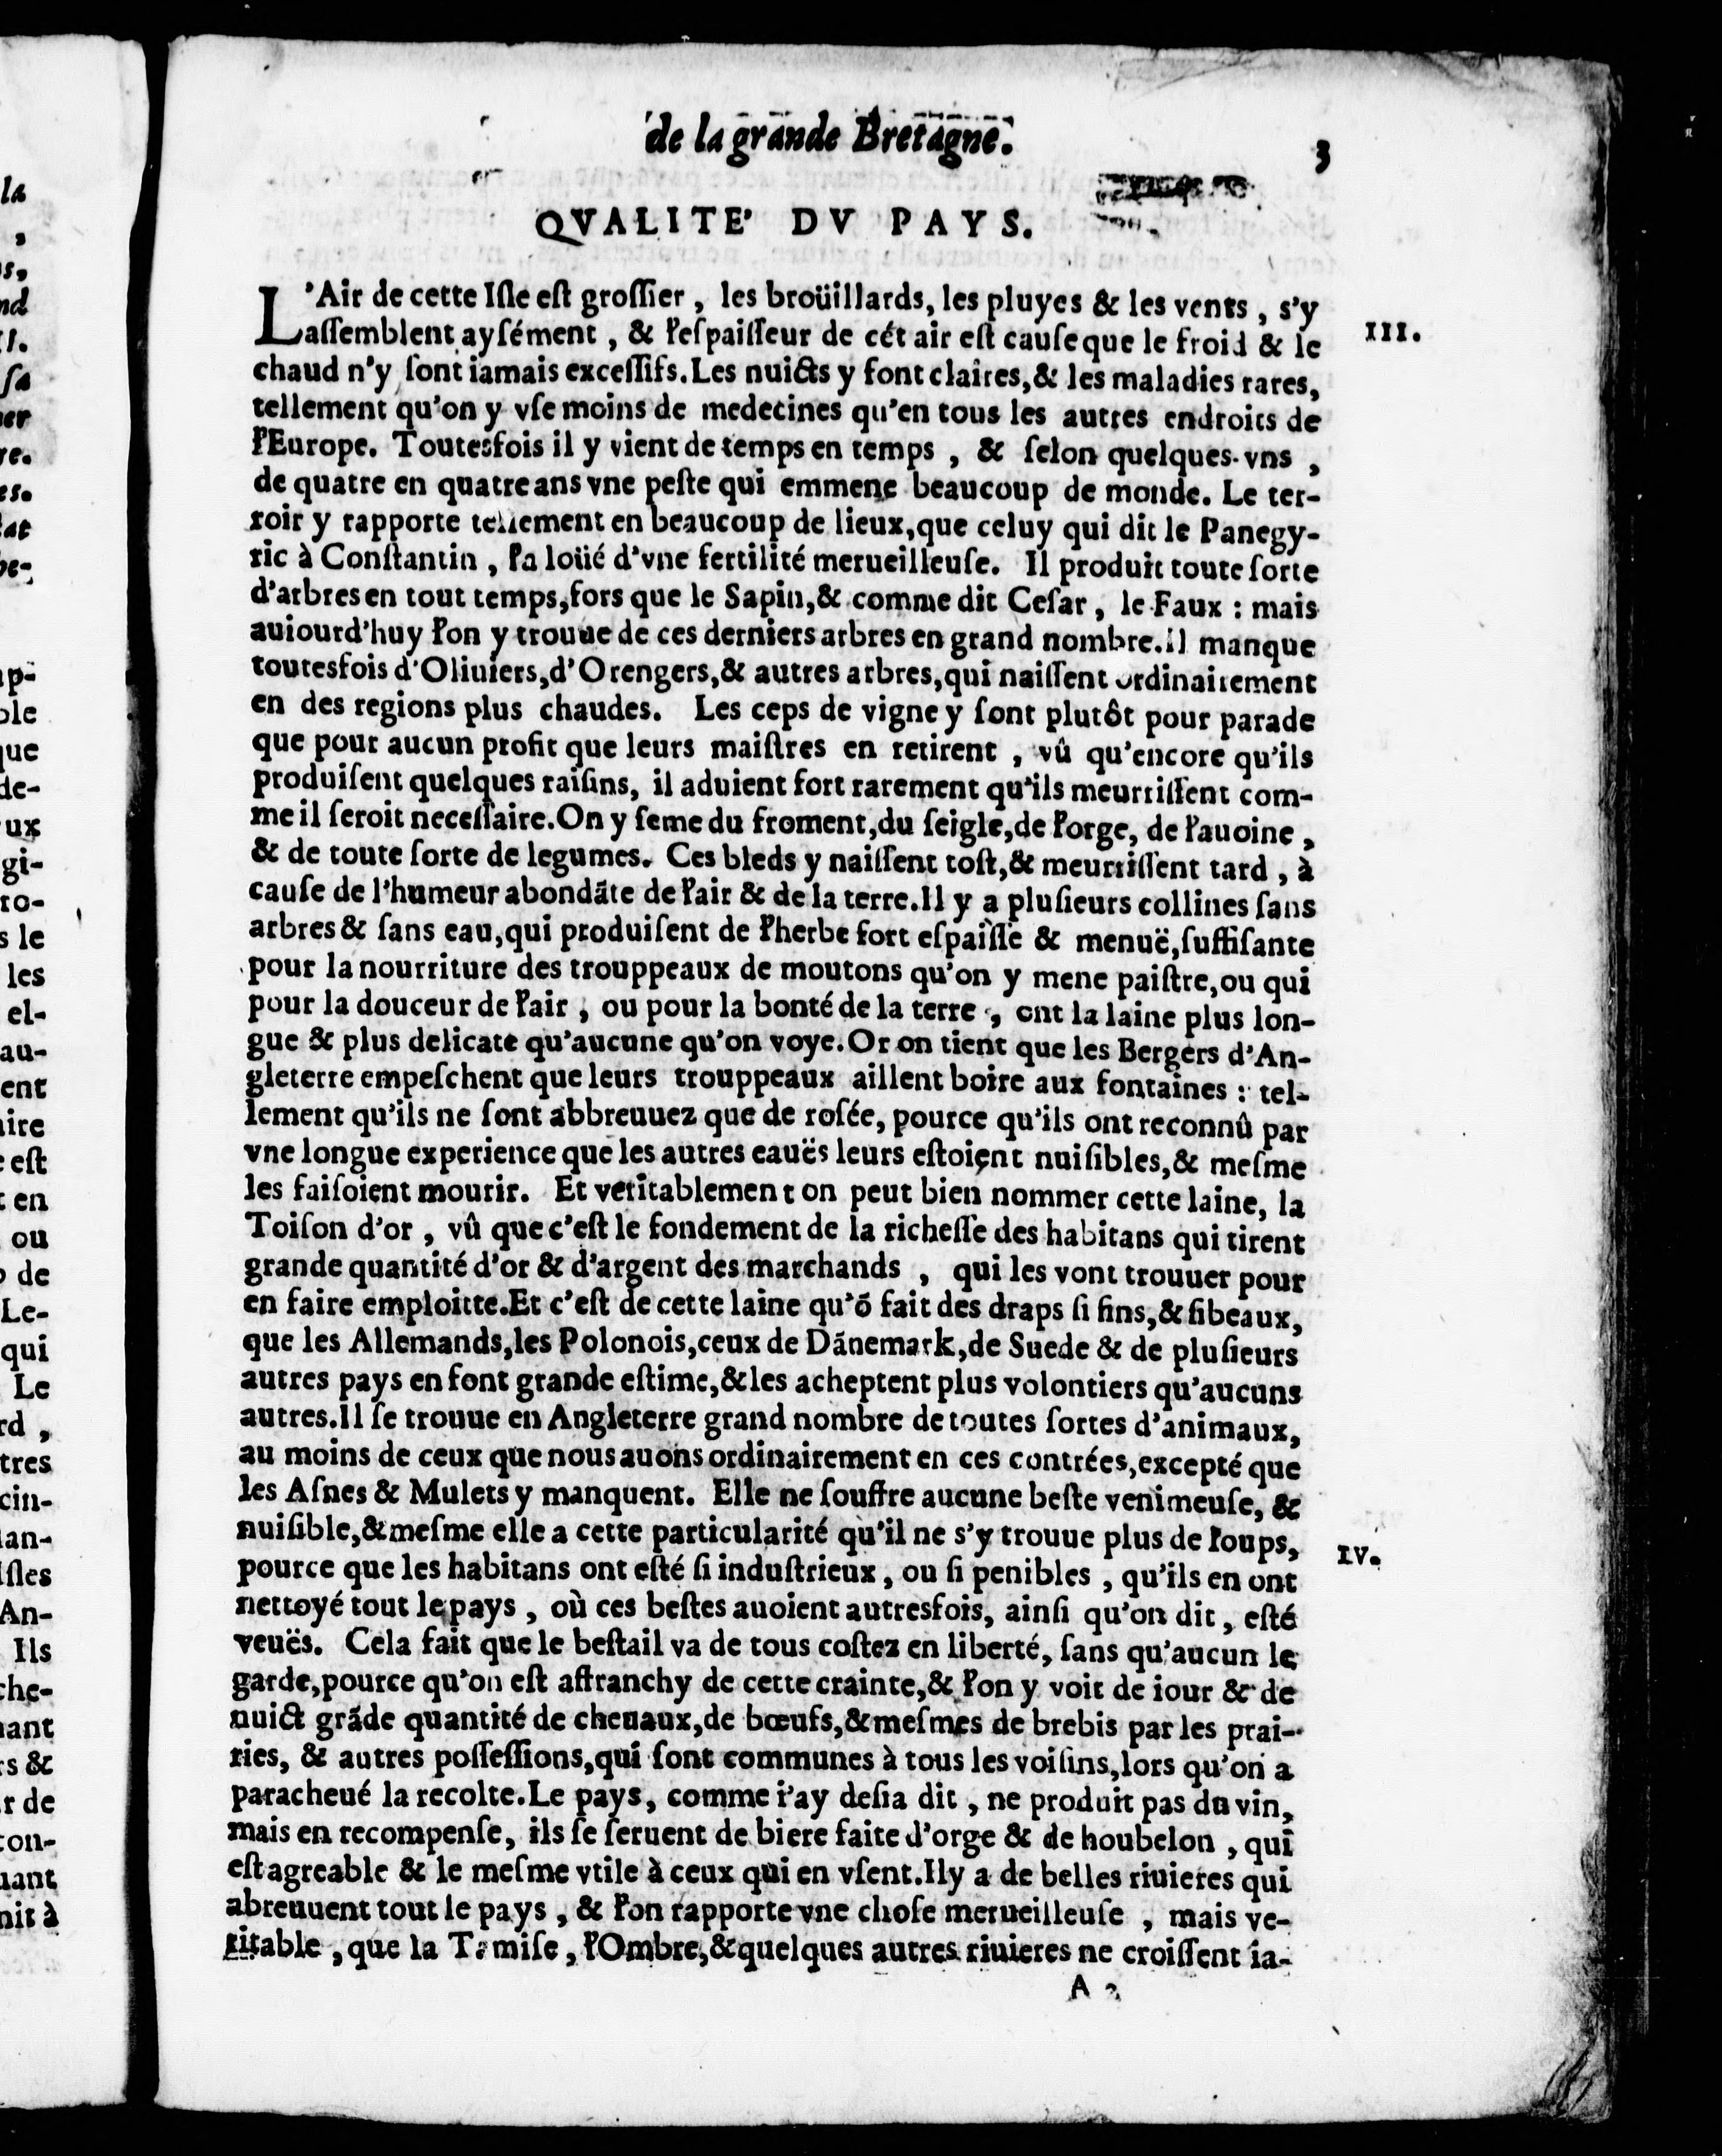 de la grande Bretagne.
3
QVALITE' DV PAYS.
L'Air de cette Iſle eſt groſſier, les broüillards, les pluyes & les vents, s'y
aſſemblent ayſément, & l'eſpaiſſeur de cét air eſt cauſe que le froid & le
III.
chaud n'y ſont iamais exceſſifs. Les nuicts y ſont claires, & les maladies rares,
tellement qu'on y vſe moins de medecines qu'en tous les autres endroits de
l'Europe. Toutesfois il y vient de temps en temps, & ſelon quelques-vns,
de quatre en quatre ans vne peſte qui emmene beaucoup de monde. Le ter-
roir y rapporte tellement en beaucoup de lieux, que celuy qui dit le Panegy-
ric à Conſtantin, l'a loüé d'vne fertilité merueilleuſe. Il produit toute ſorte
d'arbres en tout temps, fors que le Sapin, & comme dit Ceſar, le Faux : mais
auiourd'huy l'on y trouue de ces derniers arbres en grand nombre. Il manque
toutesfois d'Oliuiers, d'Orengers, & autres arbres, qui naiſſent ordinairement
en des regions plus chaudes. Les ceps de vigne y ſont plutôt pour parade
que pour aucun profit que leurs maiſtres en retirent, vû qu'encore qu'ils
produiſent quelques raiſins, il aduient fort rarement qu'ils meurriſſent com-
me il ſeroit neceſſaire. On y ſeme du froment, du ſeigle, de l'orge, de l'auoine,
& de toute ſorte de legumes. Ces bleds y naiſſent toſt, & meurriſſent tard, à
cauſe de l'humeur abondāte de l'air & de la terre. Il y a pluſieurs collines ſans
arbres & ſans eau, qui produiſent de l'herbe fort eſpaiſſe & menuë, ſuffiſante
pour la nourriture des trouppeaux de moutons qu'on y mene paiſtre, ou qui
pour la douceur de l'air, ou pour la bonté de la terre, ont la laine plus lon-
gue & plus delicate qu'aucune qu'on voye. Or on tient que les Bergers d'An-
gleterre empeſchent que leurs trouppeaux aillent boire aux fontaines : tel-
lement qu'ils ne ſont abbreuuez que de roſée, pource qu'ils ont reconnû par
vne longue experience que les autres eauës leurs eſtoient nuiſibles, & meſme
les faiſoient mourir. Et veritablement on peut bien nommer cette laine, la
Toiſon d'or, vû que c'eſt le fondement de la richeſſe des habitans qui tirent
grande quantité d'or & d'argent des marchands, qui les vont trouuer pour
en faire emploitte. Et c'eſt de cette laine qu'ō fait des draps ſi fins, & ſi beaux,
que les Allemands, les Polonois, ceux de Dānemark, de Suede & de pluſieurs
autres pays en font grande eſtime, & les acheptent plus volontiers qu'aucuns
autres. Il ſe trouue en Angleterre grand nombre de toutes ſortes d'animaux,
au moins de ceux que nous auons ordinairement en ces contrées, excepté que
les Aſnes & Mulets y manquent. Elle ne ſouffre aucune beſte venimeuſe, &
nuiſible, & meſme elle a cette particularité qu'il ne s'y trouue plus de loups,
IV.
pource que les habitans ont eſté ſi induſtrieux, ou ſi penibles, qu'ils en ont
nettoyé tout le pays, où ces beſtes auoient autresfois, ainſi qu'on dit, eſté
veuës. Cela fait que le beſtail va de tous coſtez en liberté, ſans qu'aucun le
garde, pource qu'on eſt affranchy de cette crainte, & l'on y voit de iour & de
nuict grāde quantité de cheuaux, de bœufs, & meſmes de brebis par les prai-
ries, & autres poſſeſſions, qui ſont communes à tous les voiſins, lors qu'on a
paracheué la recolte. Le pays, comme i'ay deſia dit, ne produit pas du vin,
mais en recompenſe, ils ſe ſeruent de biere faite d'orge & de houbelon, qui
eſt agreable & le meſme vtile à ceux qui en vſent. Il y a de belles riuieres qui
abreuuent tout le pays, & l'on rapporte vne choſe merueilleuſe, mais ve-
ritable, que la Tamiſe, l'Ombre, & quelques autres riuieres ne croiſſent ia-
A 2